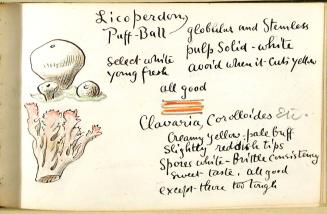 Licoperdons
Puff-Ball
globular and Stemless
pulp Solid - white
Select white
young fresh
avoid when it Cuts yellow
all good
Clavaria, Corolloides Etc.
Creamy yellow - pale buff
Slightly reddish tips
Spores white - Brittle Consistency
Sweet taste, all good
except those too tough